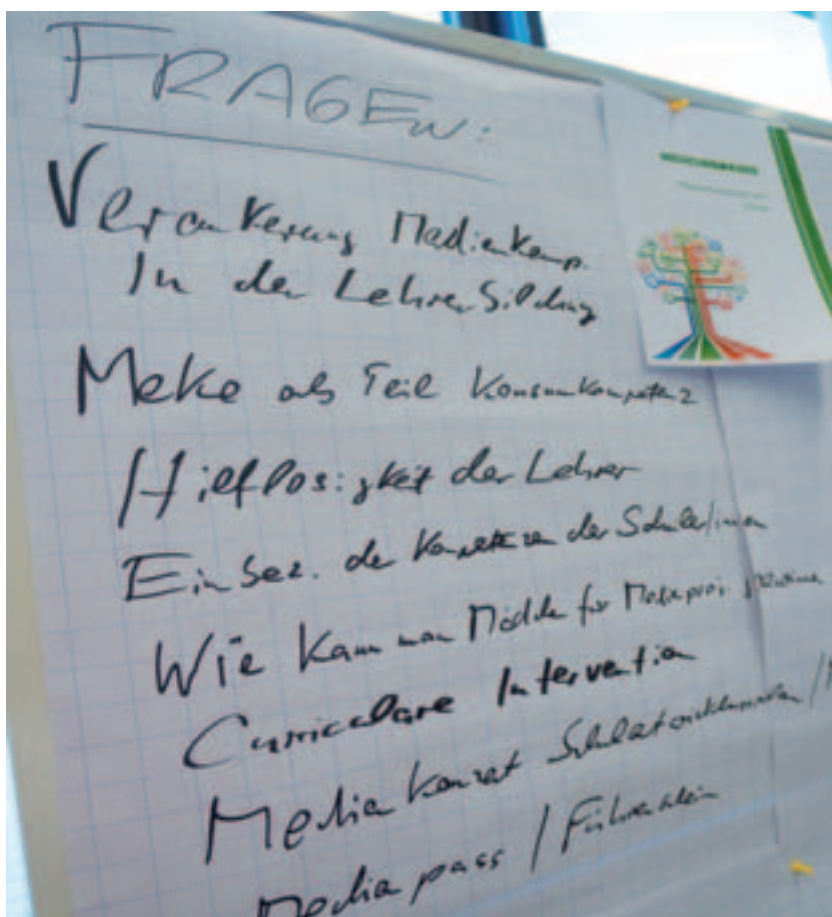 FRAGEN:
Verankerung Medienkomp.
In der Lehrerbildung
Meke als Teil Konsumkompetenz
Hilflosigkeit der Lehrer
Einbez. der Kompetenzen der Schüler/innen
Wie kann man Mädchen für
Curriculare Intervention
Medienkonzept
Medienpass / Führerschein